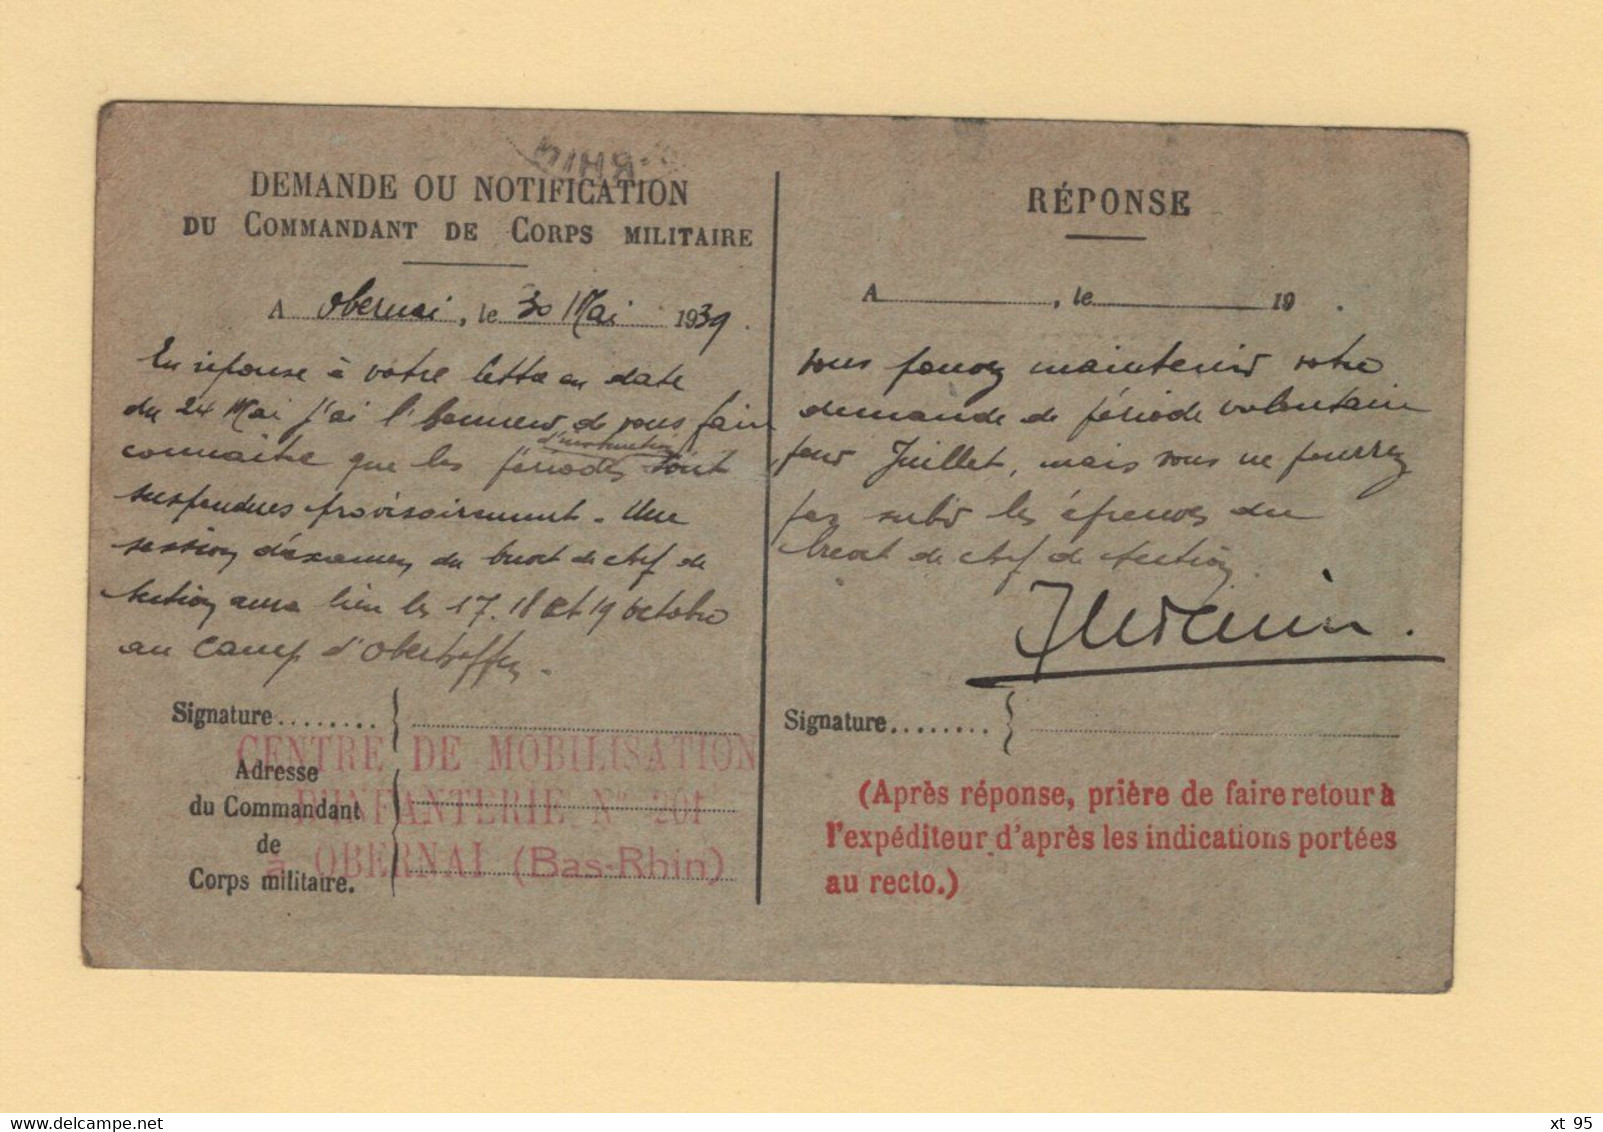 DEMANDE OU NOTIFICATION
DU COMMANDANT DE CORPS MILITAIRE
A Obernai, le 30 Mai 1939.
En réponse à votre lettre en date
du 24 Mai j'ai l'honneur de vous faire
connaître que les périodes d'instruction sont
suspendues provisoirement. Une
session d'examen du brevet de chef de
section aura lieu les 17. 18 et 19 octobre
au camp d'Oberhoffen.
Signature........
Adresse
du Commandant
de
Corps militaire.
CENTRE DE MOBILISATION
D'INFANTERIE No 201
à OBERNAI (Bas-Rhin)
RÉPONSE
A , le 19 .
Vous pouvez maintenir votre
demande de période volontaire
pour Juillet, mais vous ne pourrez
pas subir les épreuves du
brevet de chef de section.
Signature........
(Après réponse, prière de faire retour à
l'expéditeur d'après les indications portées
au recto.)
xt 95